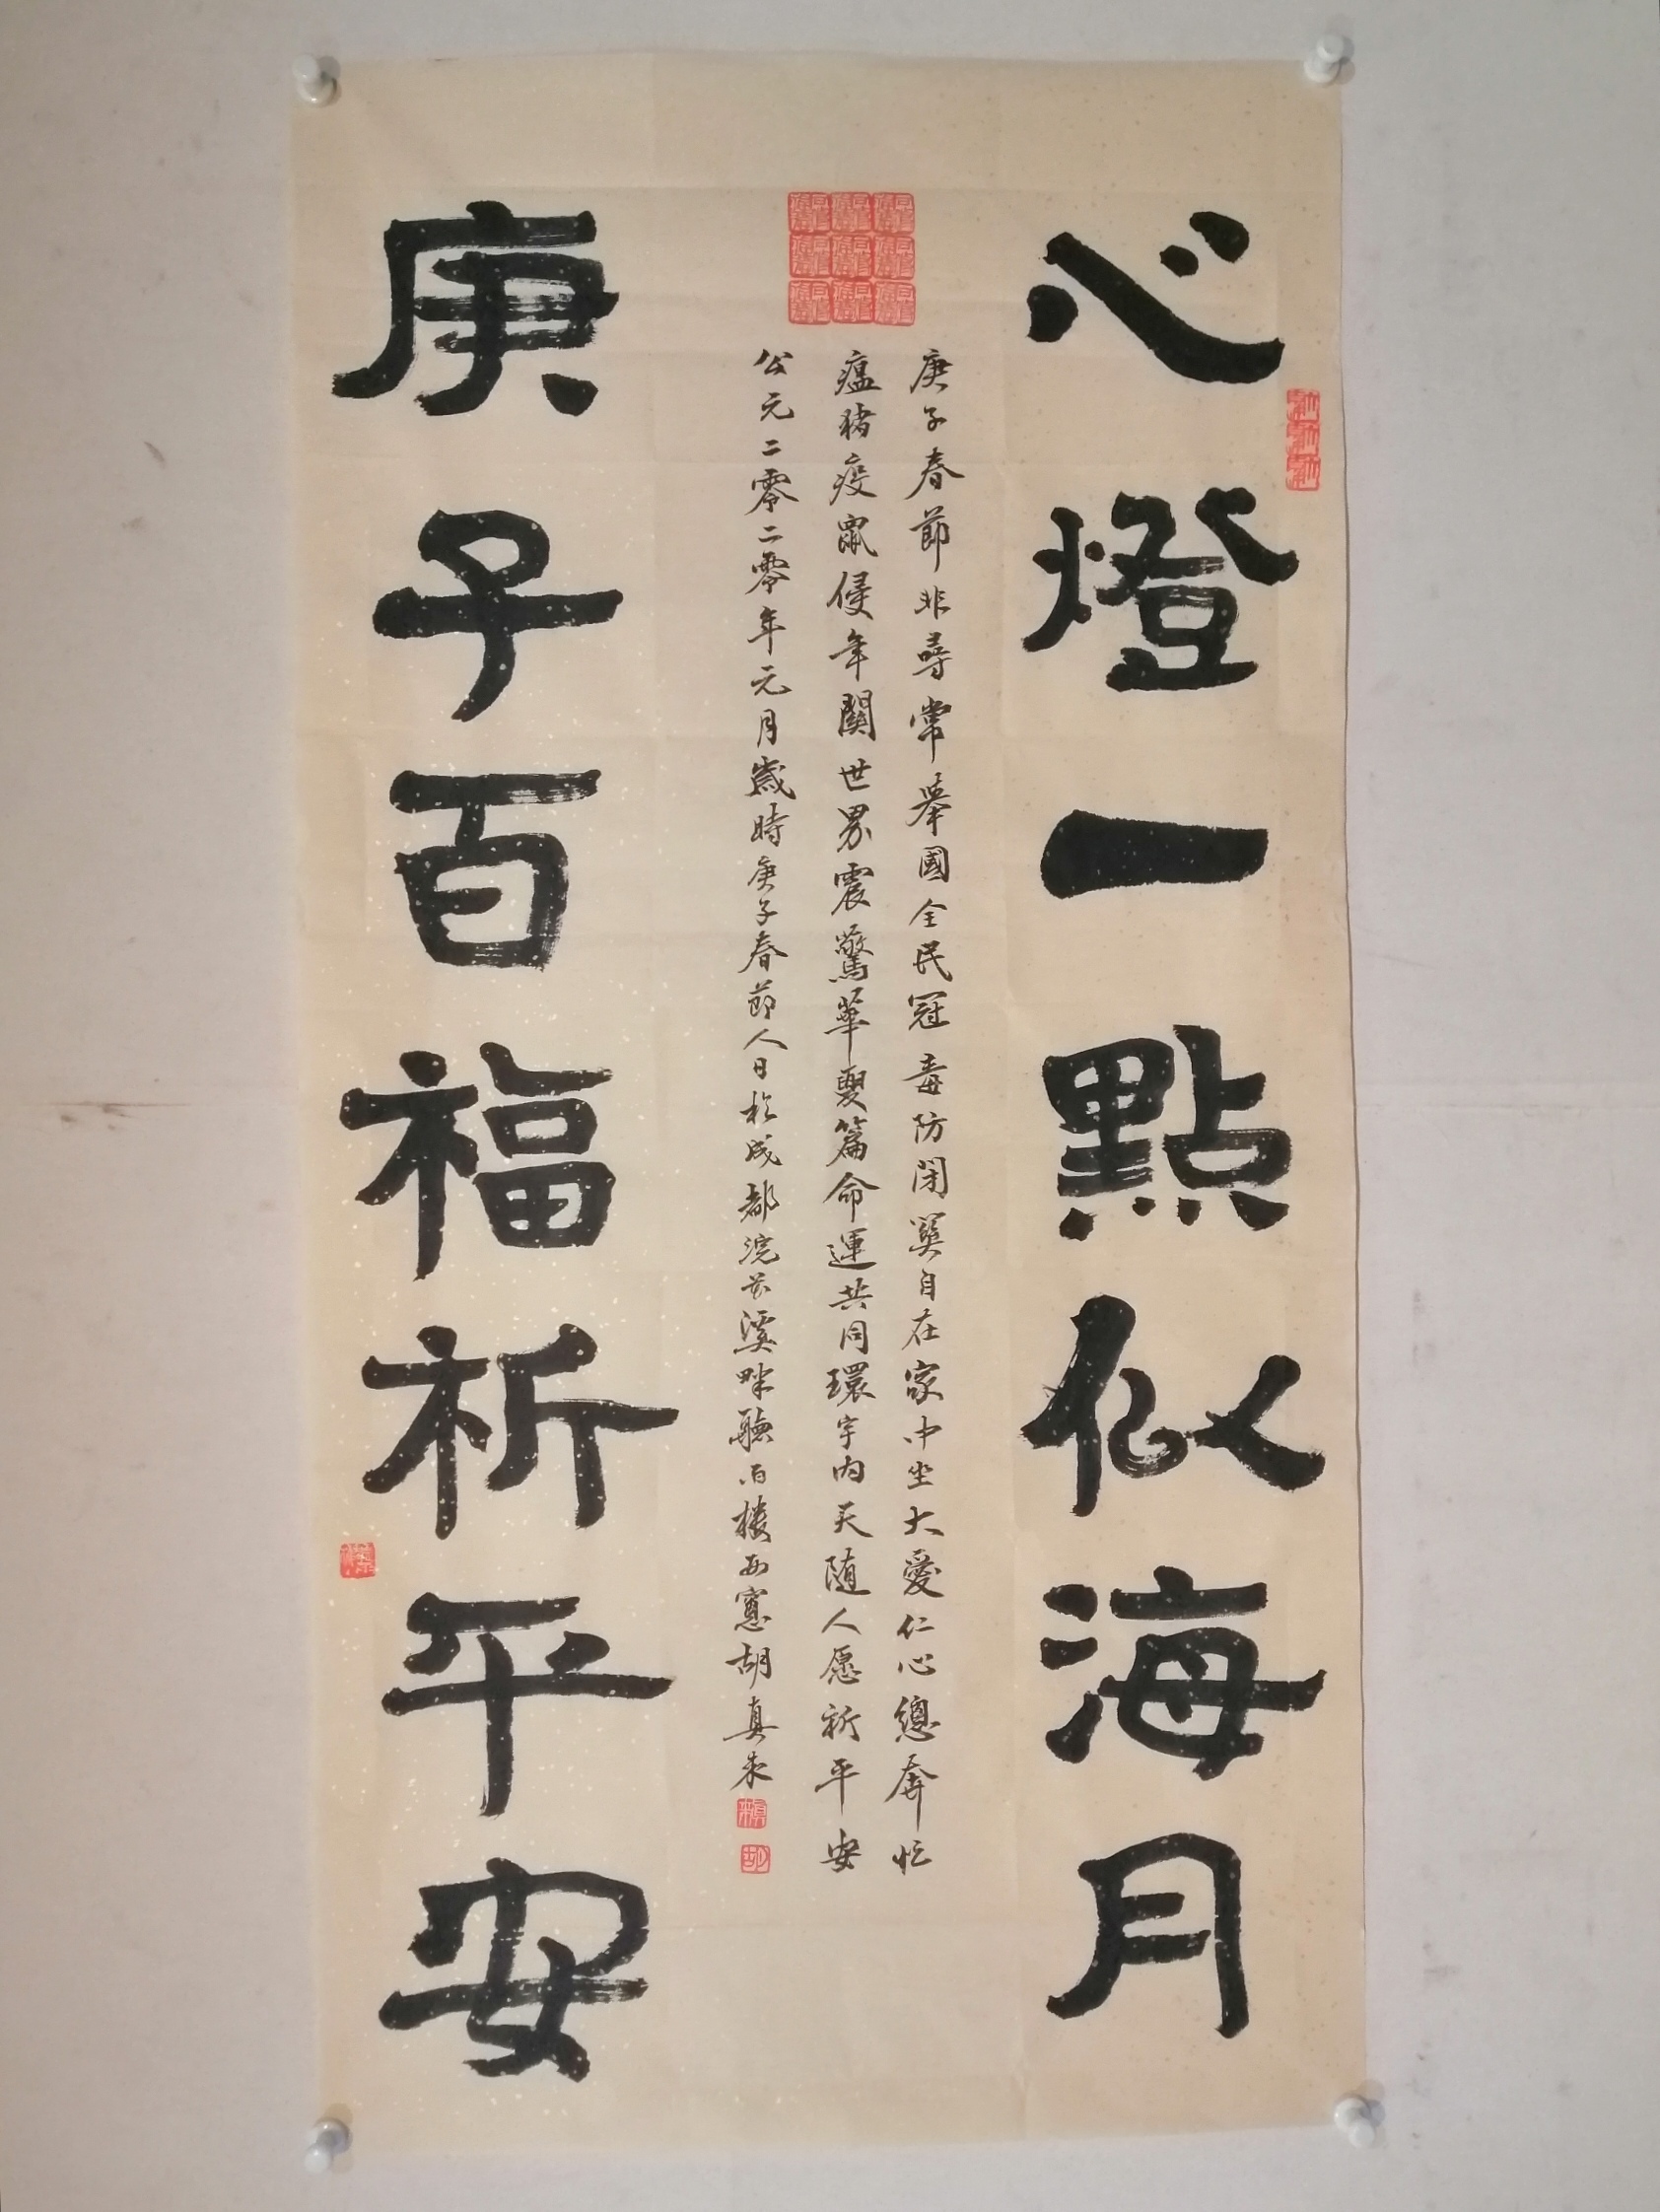 心燈一點似海月
庚子春節非尋常舉國全民冠毒防閉巽自在家中坐大愛仁心總奔忙
瘟豬疫鼠侵年關世界震驚華夏篇命運共同環宇内天随人愿祈平安
公元二零二零年元月歲時庚子春節人日於成都浣花溪畔聽雨樓西窓胡真來
庚子百福祈平安